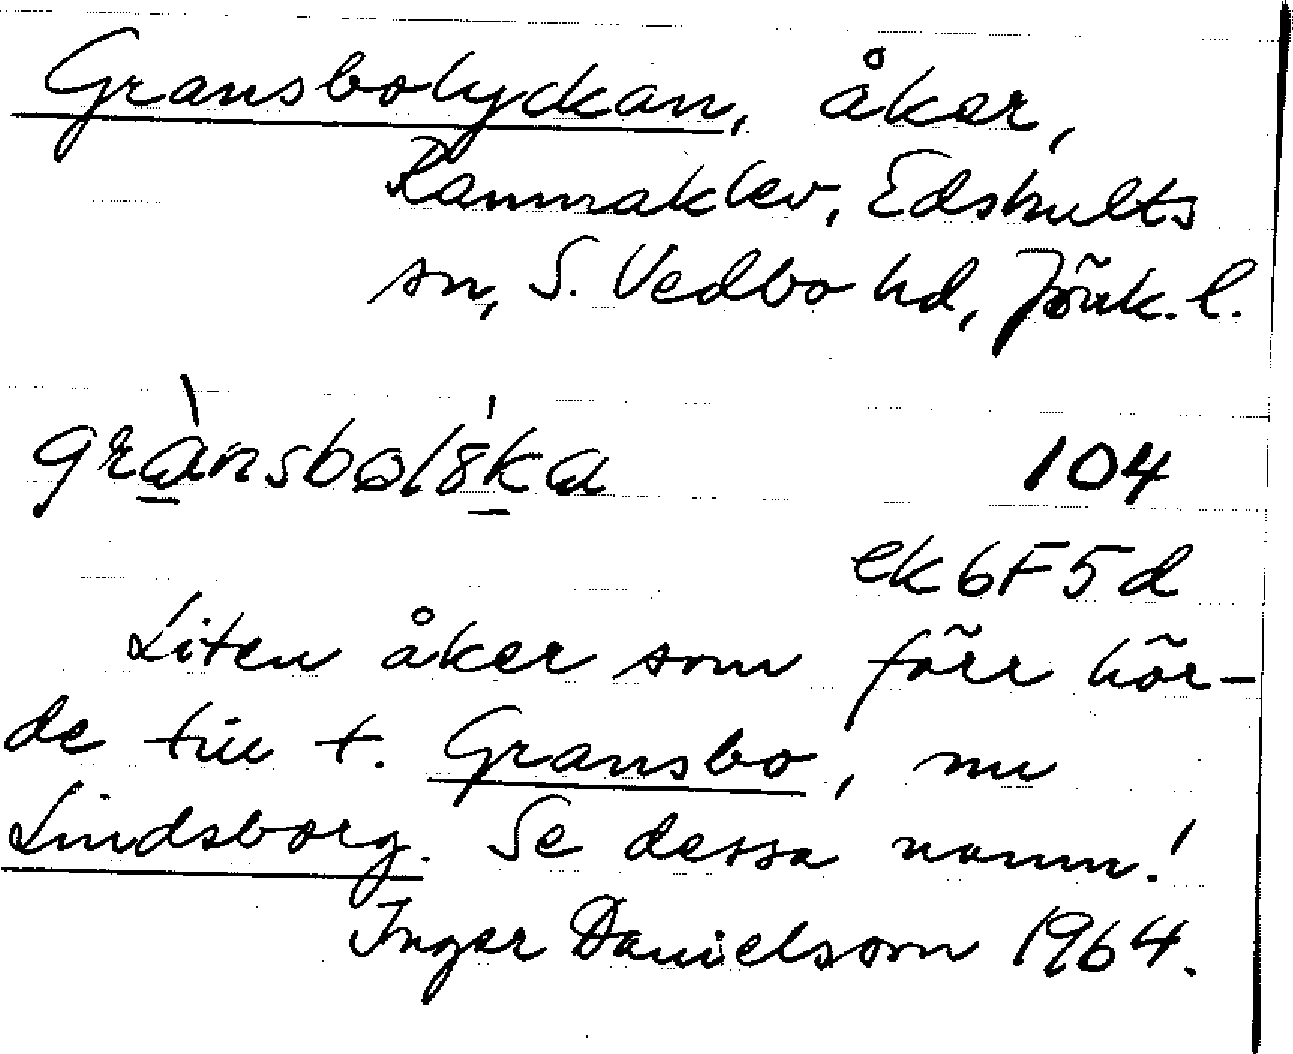 Gransbolyckan, åker,
Rammaklev, Edshults
sn, S. Vedbo hd, Jönk. l.
grànsbolȣ́ka 104
ek 6F5d
Liten åker som förr hör-
de till t. Gransbo, nu
Lindsborg. Se dessa namn!
Inger Danielsson 1964.